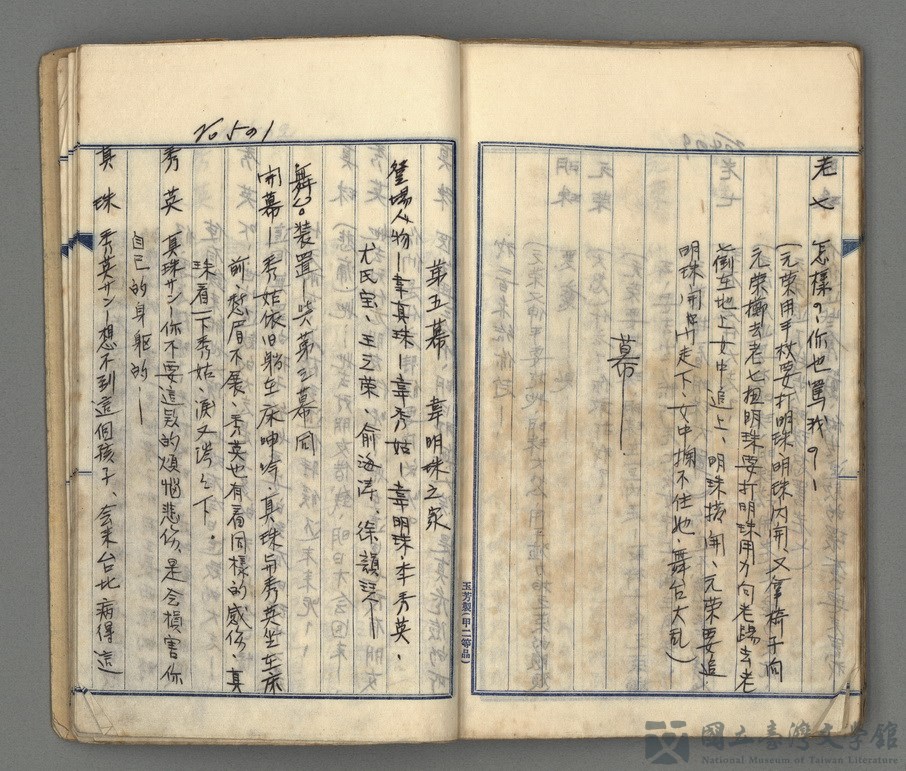 老七　怎樣？你也罵我？—
（元荣用手杖要打明珠、明珠閃開、又拿椅子向
元荣擲去老七扭明珠要打明珠用力向老七踢去老
七倒在地上女中追上、明珠撥開、元荣要追
明珠、開出門走下、女中掬不住她、舞台大乱）
幕—
玉芳製（甲二等品）
26501
第五幕　韋明珠之家
登場人物—韋真珠—韋秀姑—韋明珠．李秀英．
尤氏宝、王元荣、俞海濤．徐韻琴—
舞台装置—與第三幕同
開幕—秀姑依旧躺在床呻吟．真珠与秀英坐在床
前、愁眉不展、秀英也有着同樣的感傷、真
珠看一下秀姑、淚又涔々下
秀英　真珠サン—你不要這致的煩惱悲傷、是会損害你
自己的身躯的—
真珠　秀英サン—想不到這個孩子、去來台北、病得這
國立臺灣文學館
National Museum of Taiwan Literature